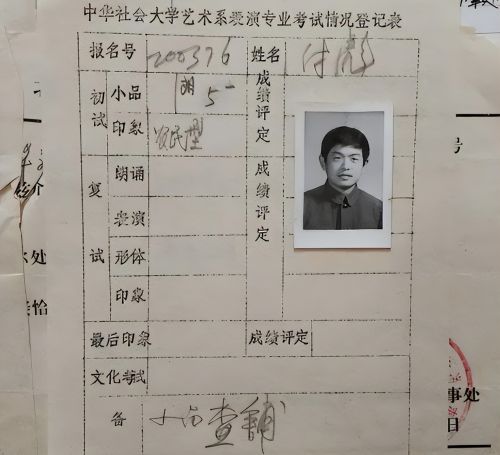 中华社会大学艺术系表演专业考试情况登记表
报名号 200376 姓名 付彪
初试 小品 朗 5- 成绩评定
印象 农民型
复试 朗诵 成绩评定
表演
形体
印象
最后印象 成绩评定
文化考试
备
号
处
恰
事处
日